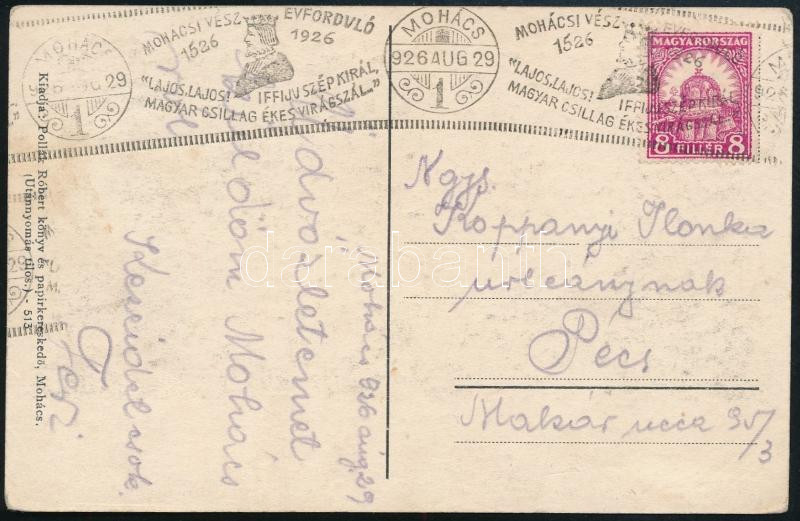 MOHÁCS
926 AUG 29
1
MOHÁCSI VÉSZ ÉVFORDULÓ
1526 1926
"LAJOS, LAJOS! IFFIJU SZÉP KIRÁL,
MAGYAR CSILLAG ÉKES VIRÁGSZÁL..."
MOHÁCS
926 AUG 29
1
MOHÁCSI VÉSZ ÉVFORDULÓ
1526 1926
"LAJOS, LAJOS! IFFIJU SZÉP KIRÁL,
MAGYAR CSILLAG ÉKES VIRÁGSZÁL..."
MAGYARORSZÁG
8 FILLÉR 8
Kiadja: Pollák Róbert könyv és papirkereskedő, Mohács.
(Utánnyomás tilos.) - 513.
Mohács 926 aug. 29
Üdvözletemet
küldöm Mohács
Kezeidet csók.
Ngys.
Koppányi Ilonka
urleánynak
Pécs
Makár ucca 35/3
darabanth.com